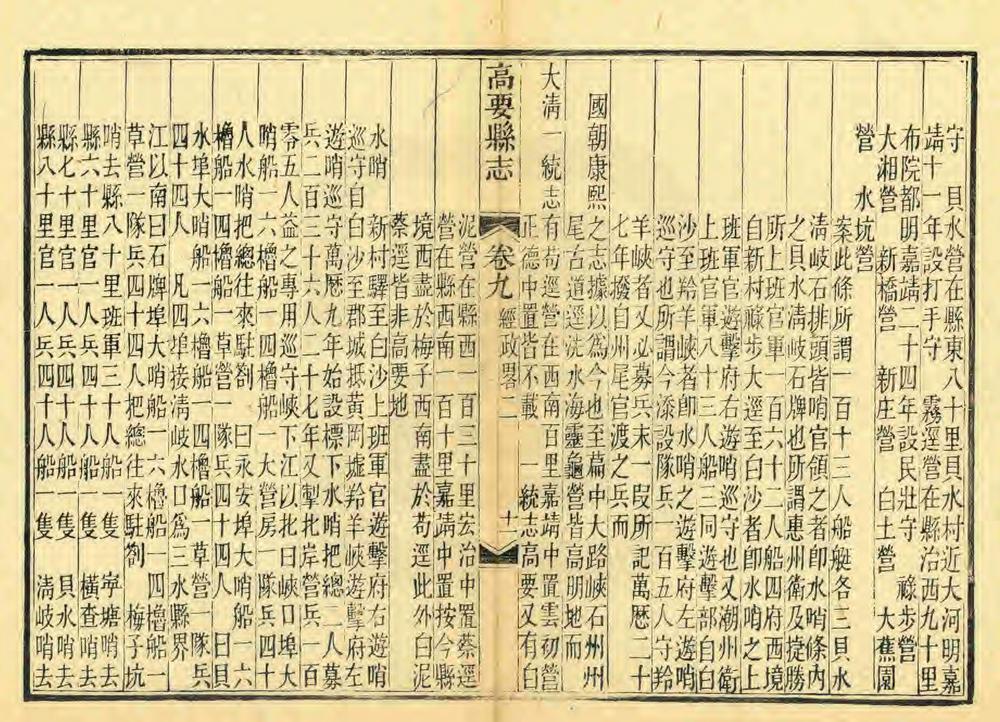 守　貝水營在縣東八十里貝水村近大河明嘉
靖十一年設打手守　霧逕營在縣治西九十里
布院都明嘉靖二十四年設民壯守　祿步營
大湘營　新橋營　新庄營　白土營　大蕉園
營　水坑營
案此條所謂一百十三人船艇各三貝水
清岐石排頭皆哨官領之者卽水哨條內
之貝水清岐石牌也所謂惠州衛及㨗勝
所上班官軍一百六十二人船四府西境
自新村祿步大逕至白沙者卽水哨之上
班軍官遊擊府右遊哨巡守也又潮州衛
上班官軍八十三人船三同遊擊部自白
沙至羚羊峽者卽水哨之遊擊府左遊哨
巡守也所謂今添設隊兵一百五人守羚
羊峽者又必募兵末一叚所記萬厯二十
七年撥自州尾官渡之兵而
國朝康熙之志據以為今也至扁中大路峽石州州
尾古道逕洗水海靈龜營皆高明地而
大清一統志有苟逕營在西南百里嘉靖中置雲初營
正德中置皆不載　一統志高要又有白
高要縣志　卷九　經政畧二　十一
泥營在縣西一百三十里宏治中置蔡逕
營在縣西南一百十里嘉靖中置按今縣
境西盡於梅子西南盡於苟逕此外白泥
蔡逕皆非高要地
水哨　新村驛至白沙上班軍官遊擊府右遊哨
巡守自白沙至郡城抵黃岡墟羚羊峽遊擊府左
遊哨巡守萬厯九年始設標下水哨把總二人募
兵二百三十六人二十七年又掣北岸營兵一百
零五人益之專用巡守峽下江以北曰峽口埠大
哨船一六櫓船一四櫓船一大營房一隊兵四十
人水哨把總往來駐劄　曰永安埠大哨船一六
櫓船一四櫓船一草營一隊兵四十四人　曰貝
水埠大哨船一六櫓船一四櫓船一草營一隊兵
四十四人　凡四埠接清岐水口為三水縣界
江以南曰石牌埠大哨船一六櫓船一四櫓船一
草營一隊兵四十四人把總往來駐劄　梅子坑
哨去縣八十里班軍三十人船一隻　寕塘哨去
縣六十里官一人兵四十人船一隻　橫查哨去
縣七十里官一人兵四十人船一隻　貝水哨去
縣八十里官一人兵四十人船一隻　清岐哨去